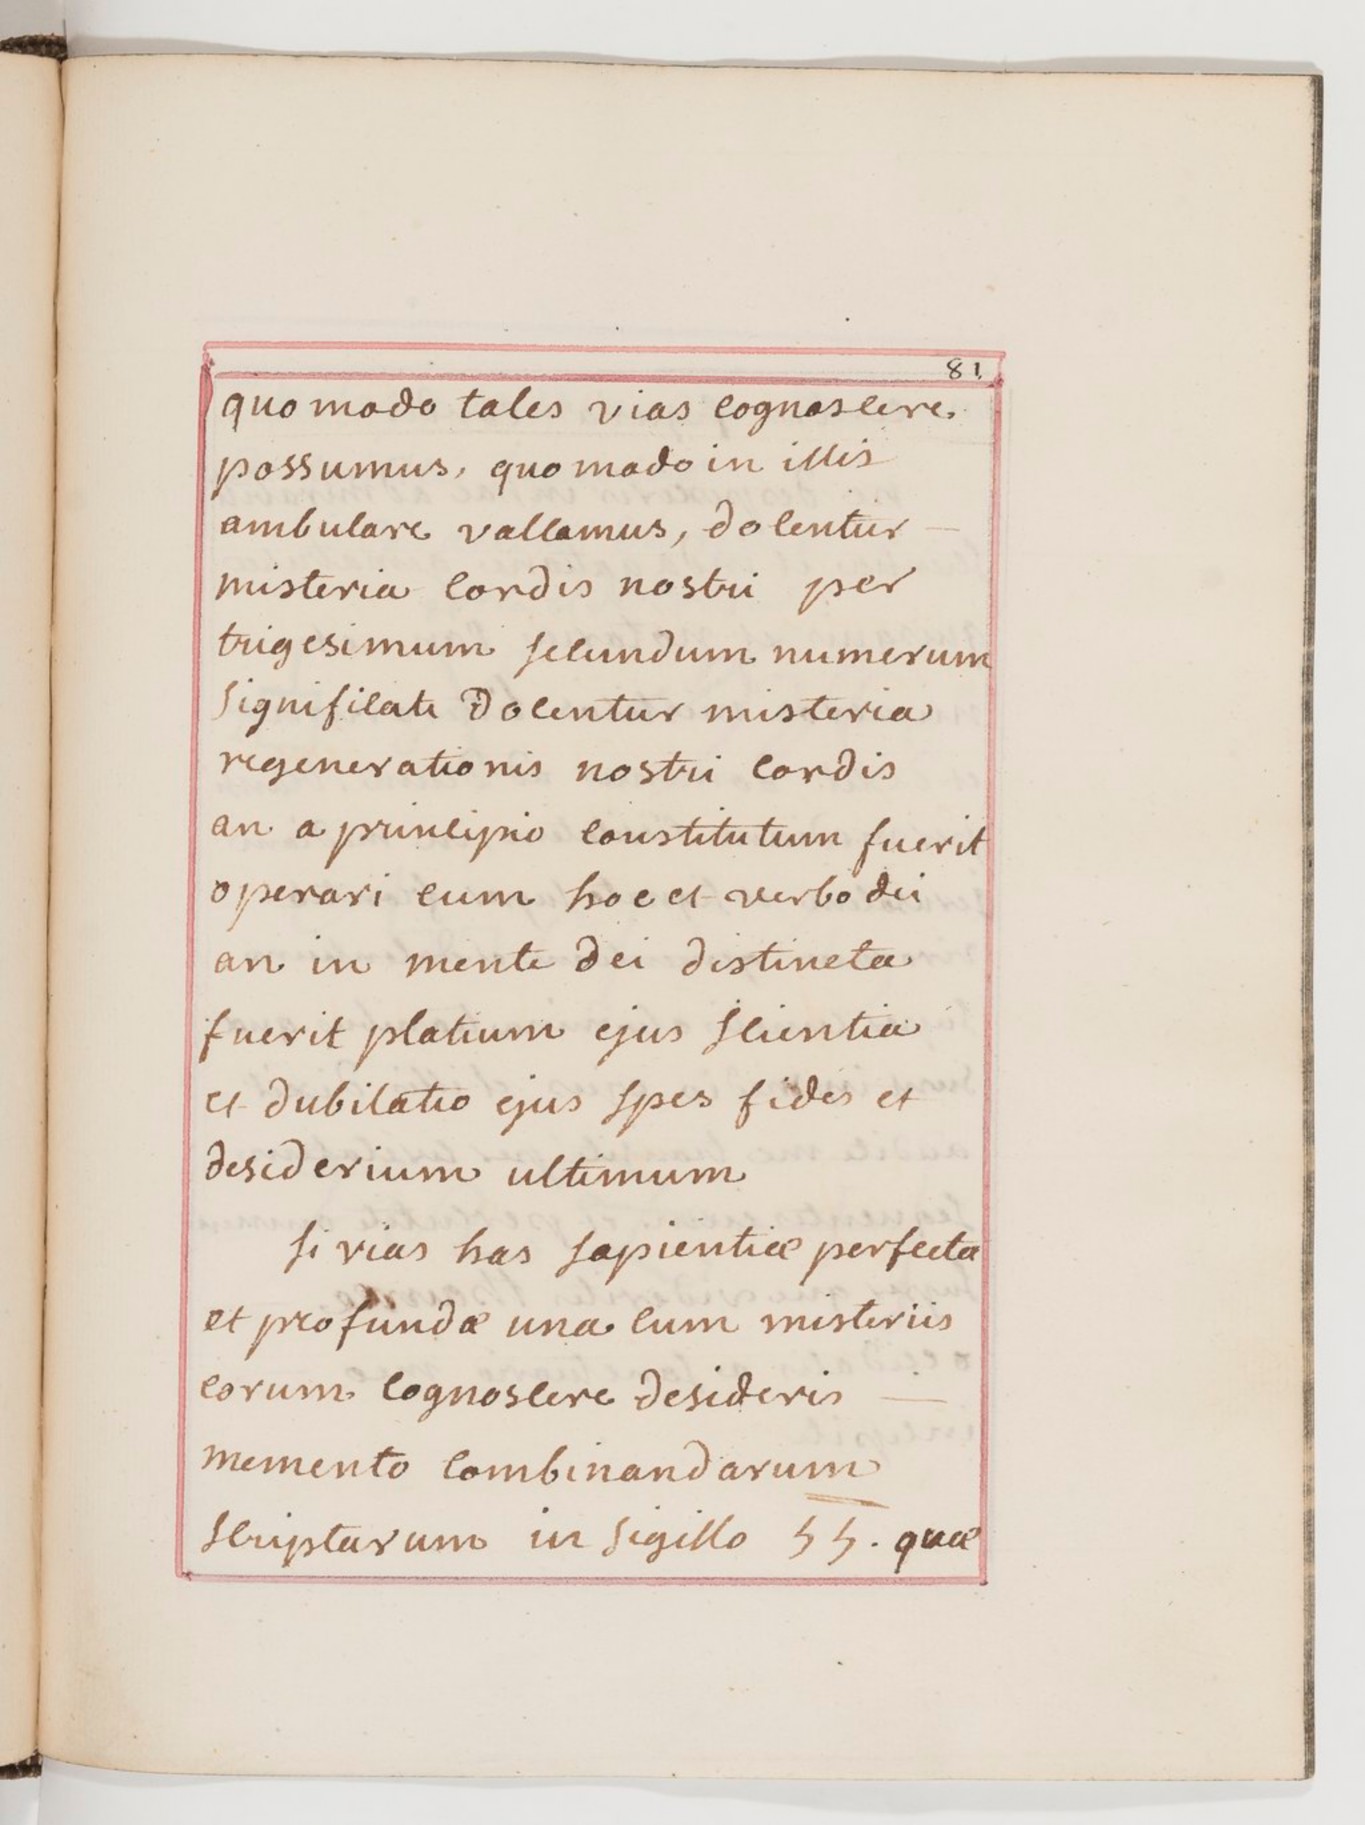 81.
quomodo tales vias cognoscere.
possumus, quomodo in illis
ambulare valeamus, docentur —
misteria cordis nostri per
trigesimum secundum numerum
significate docentur misteria
regenerationis nostri cordis
an a principio constitutum fuerit
operari cum hoc et verbo dei
an in mente dei distincta
fuerit platium ejus scientia
et dubilatio ejus spes fides et
desiderium ultimum
si vias has sapientiæ perfecta
et profundæ una cum misteriis
eorum cognoscere desideris —
memento combinandarum
scripturarum in sigillo ϟϟ. quæ